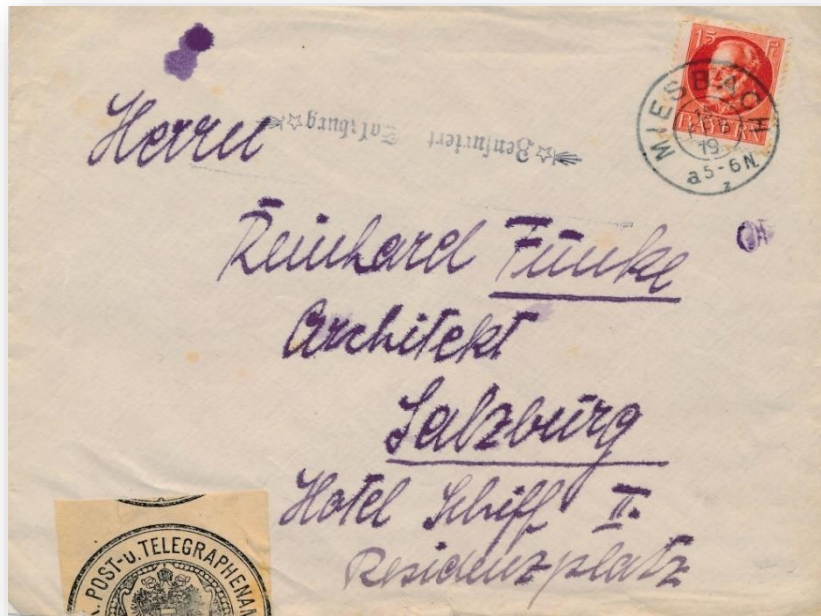 15 Pf
BAYERN
MIESBACH
19
a 5-6 N.
z
Zensuriert Salzburg
Herrn
Reinhard Funke
Architekt
Salzburg
Hotel Schiff II.
Residenzplatz
K. POST-u. TELEGRAPHENAM